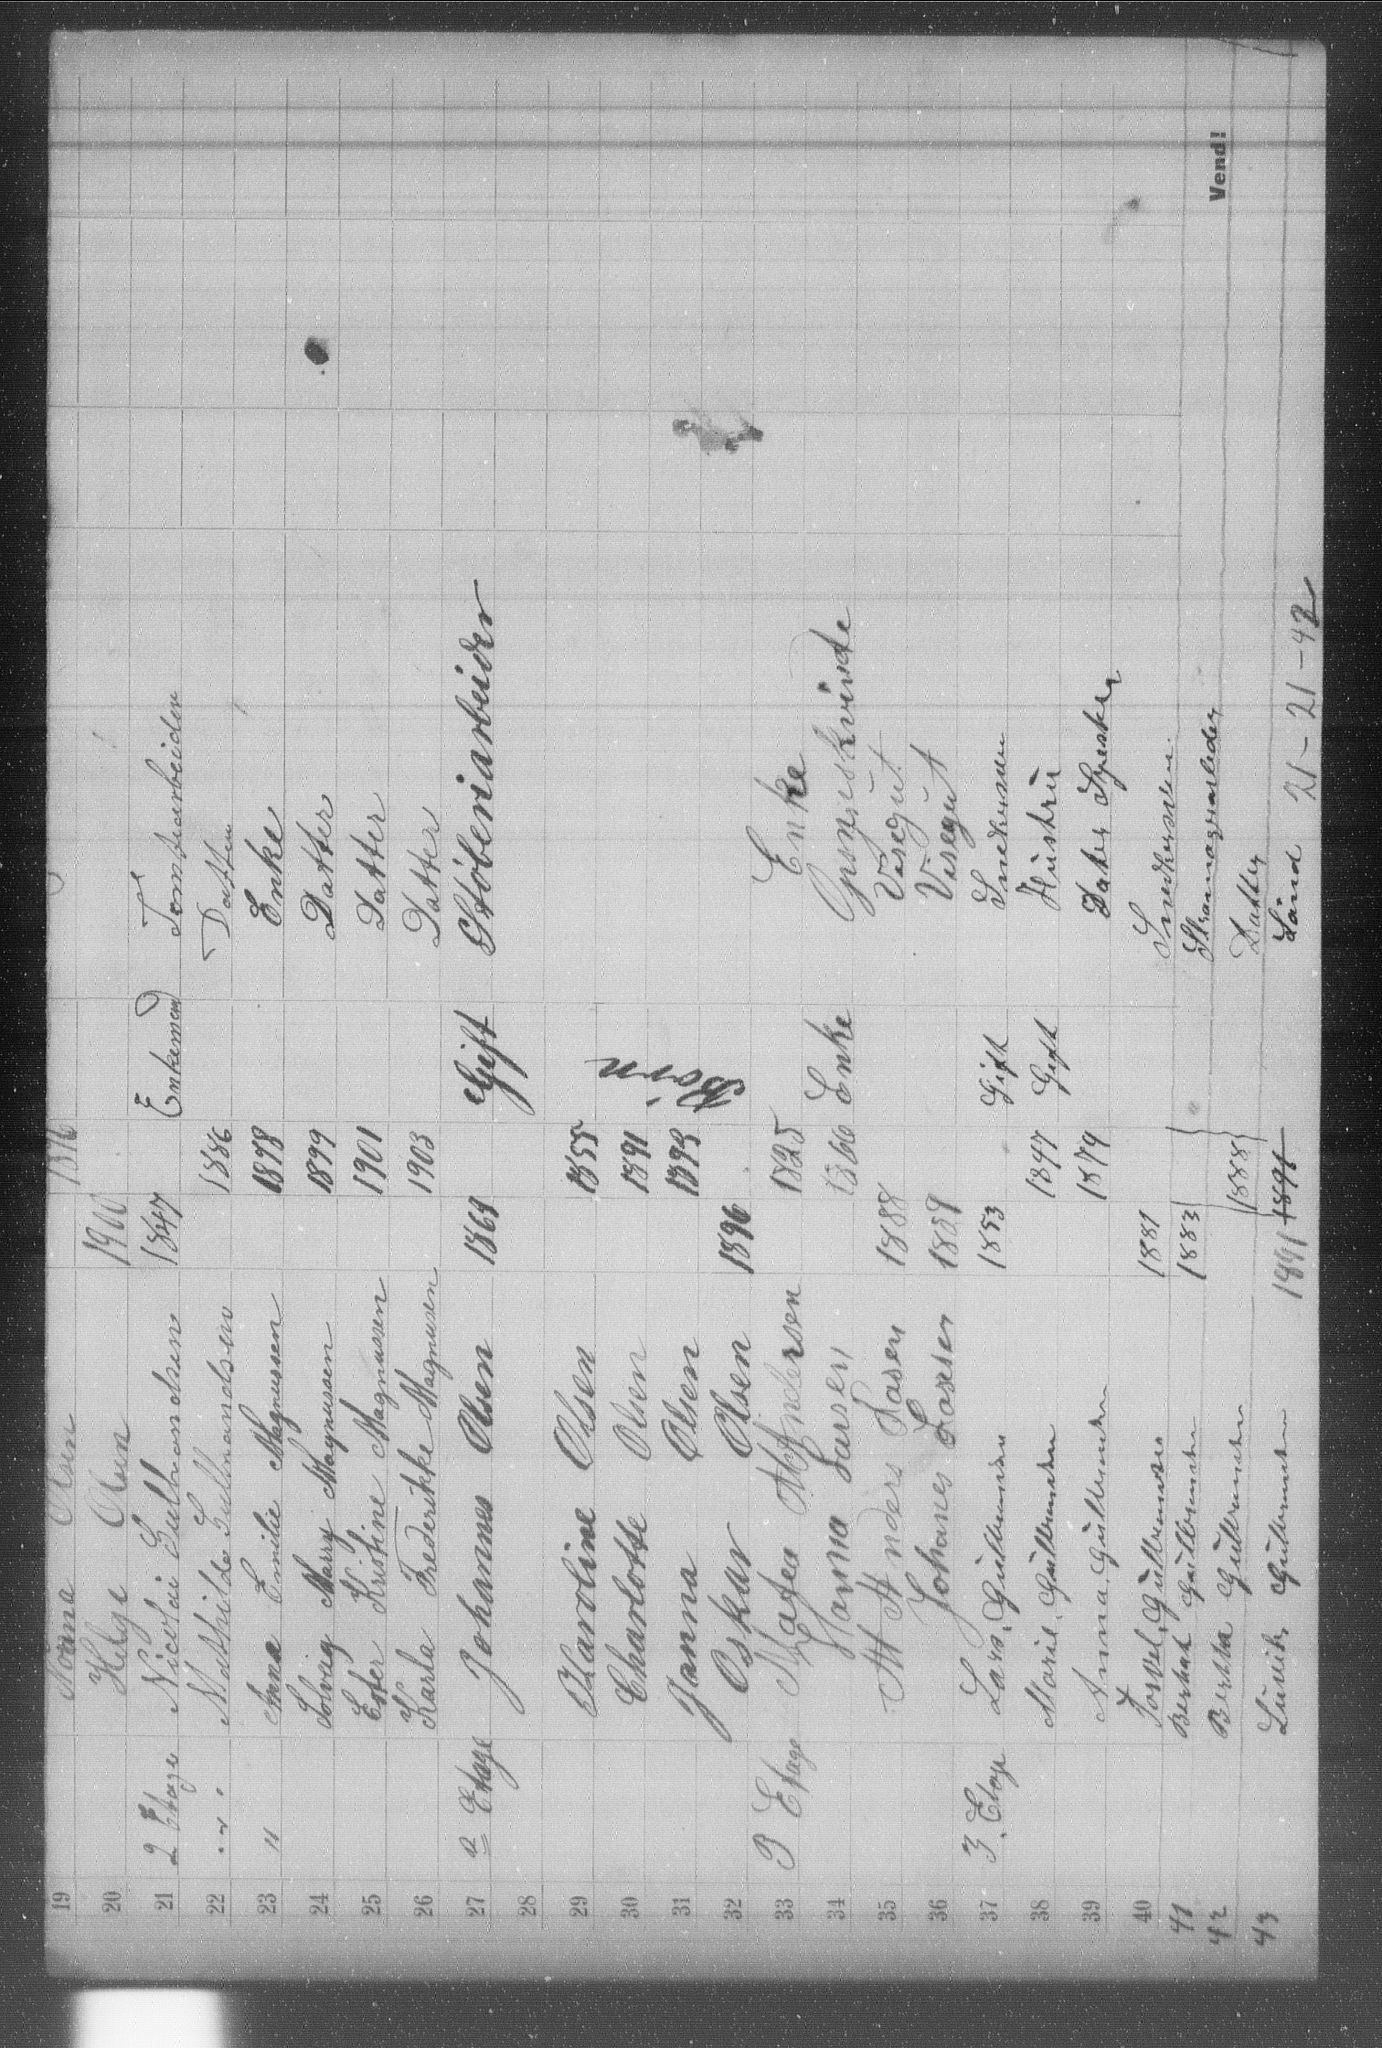 19 Olsen 1876
20 Helge Olsen 1900
21 2 Etage Nicolai Gulbrandsen 1847 Enkemand Tomtearbeider
22 Mathilde Gulbrandsen 1886 Datter
23 " Anna Emilie Magnussen 1878 Enke
24 Solveig Marry Magnussen 1899 Datter
25 Ester Kristine Magnussen 1901 Datter
26 Karla Frederikke Magnusen 1903 Datter
27 2 Etage Johannes Olsen 1869 Gift Støberiarbeider
28
29 Karoline Olsen 1855
30 Charlotte Olsen 1891 Børn
31 Janna Olsen 1893
32 Oskar Olsen 1896
33 3 Etage Matea Andersen 1825 Enke
34 Hanna Larsen 1866 Enke
35 Anders Lasen 1888 Visergut
36 Johanes Larsen 1889 Visegut
37 3. Etage Lars, Gulbrandsen 1853 Gift Snedkersven
38 Marie, Gulbrandsen 1847 Gift Hustru
39 Anna, Gulbrandsen 1879 Dater Syerske
40 Gulbrandsen 1881 Snedkersven.
41 Gulbrandsen 1883
42 Bertha Gulbrandsen 1888 Datter
43 Gulbrandsen 1891 1891 Sønd
21-21-42
Vend!